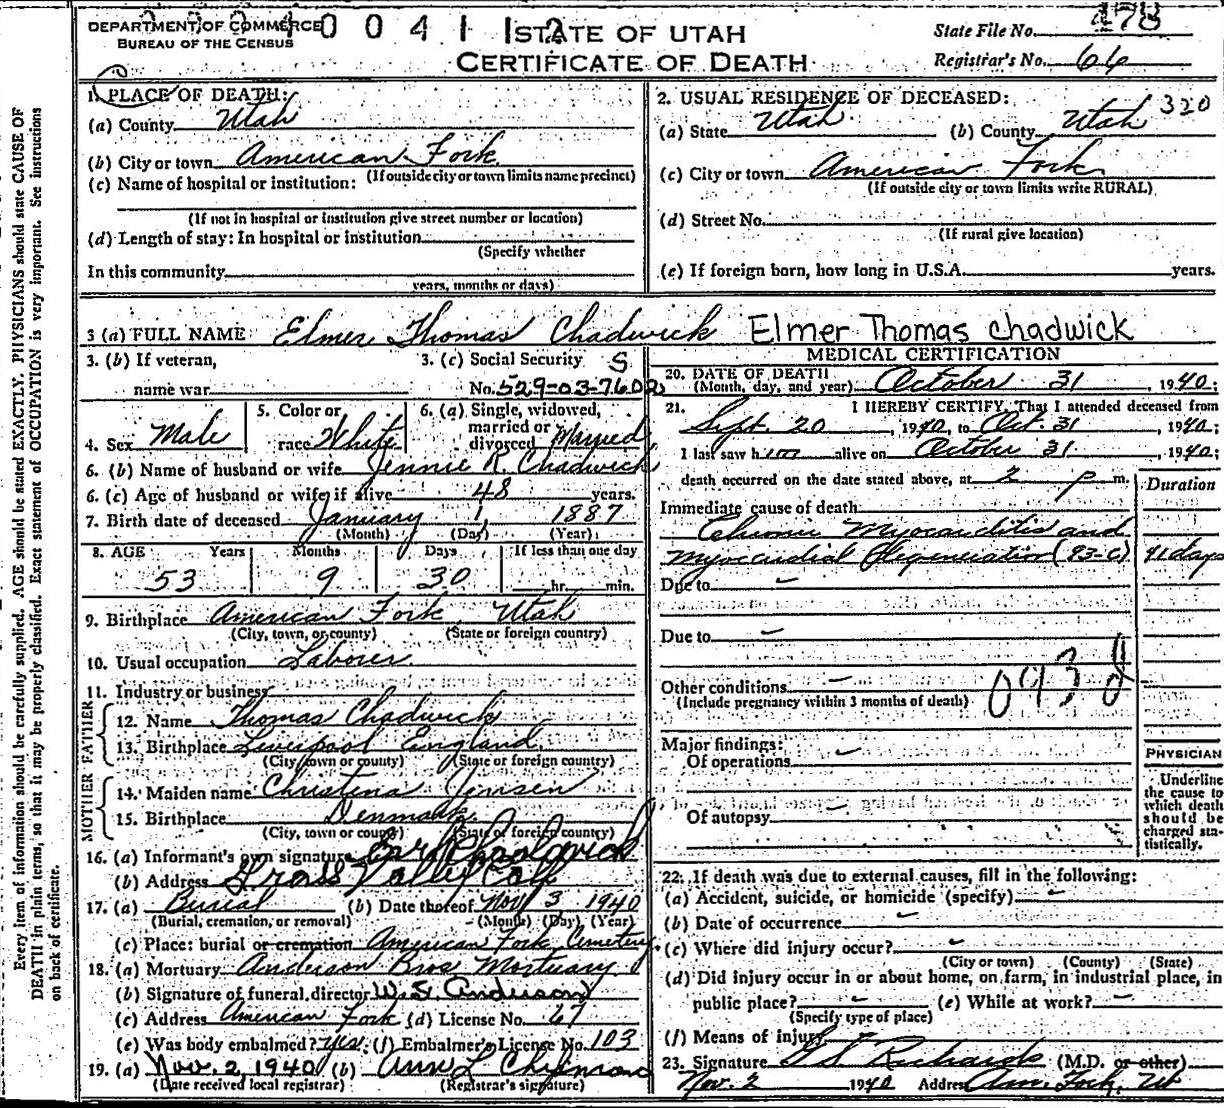 DEPARTMENT OF COMMERCE
BUREAU OF THE CENSUS
0 0 4 1 1 2
STATE OF UTAH
CERTIFICATE OF DEATH
State File No. 478
Registrar's No. 66
1. PLACE OF DEATH:
(a) County Utah
(b) City or town American Fork
(If outside city or town limits name precinct)
(c) Name of hospital or institution:
(If not in hospital or institution give street number or location)
(d) Length of stay: In hospital or institution
(Specify whether
In this community
years, months or days)
2. USUAL RESIDENCE OF DECEASED:
320
(a) State Utah (b) County Utah
(c) City or town American Fork
(If outside city or town limits write RURAL)
(d) Street No.
(If rural give location)
(e) If foreign born, how long in U.S.A. years.
3 (a) FULL NAME Elmer Thomas Chadwick Elmer Thomas Chadwick
3. (b) If veteran,
name war
3. (c) Social Security S
No. 529-03-7602
4. Sex Male
5. Color or
race White
6. (a) Single, widowed,
married or
divorced Married
6. (b) Name of husband or wife Jennie R. Chadwick
6. (c) Age of husband or wife if alive 48 years.
7. Birth date of deceased January 1 1887
(Month) (Day) (Year)
8. AGE Years Months Days If less than one day
53 9 30 hr. min.
9. Birthplace American Fork Utah
(City, town, or county) (State or foreign country)
10. Usual occupation Laborer
11. Industry or business
FATHER
12. Name Thomas Chadwick
13. Birthplace Liverpool England
(City town or county) (State or foreign country)
MOTHER
14. Maiden name Christena Jensen
15. Birthplace Denmark
(City, town or county) (State or foreign country)
16. (a) Informant's own signature Chadwick
(b) Address Grass Valley Calf
17. (a) Burial (b) Date thereof Nov 3 1940
(Burial, cremation, or removal) (Month) (Day) (Year)
(c) Place: burial or cremation American Fork Cemetery
18. (a) Mortuary Anderson Bros Mortuary
(b) Signature of funeral director W. S. Anderson
(c) Address American Fork (d) License No. 67
(e) Was body embalmed? Yes. (f) Embalmer's License No. 103
19. (a) Nov. 2, 1940 (b) Ann L
(Date received local registrar) (Registrar's signature)
MEDICAL CERTIFICATION
20. DATE OF DEATH
(Month, day, and year) October 31 1940;
21. I HEREBY CERTIFY, That I attended deceased from
Sept. 20, 1940, to Oct. 31, 1940;
I last saw him alive on October 31, 1940;
death occurred on the date stated above, at 2 p m.
Duration
Immediate cause of death
Chronic Myocarditis and
Myocardial Degeneration (93-C) 41 days
Due to
Due to
Other conditions
(Include pregnancy within 3 months of death)
093d
Major findings:
Of operations
Of autopsy
PHYSICIAN
Underline
the cause to
which death
should be
charged sta-
tistically.
22. If death was due to external causes, fill in the following:
(a) Accident, suicide, or homicide (specify)
(b) Date of occurrence
(c) Where did injury occur?
(City or town) (County) (State)
(d) Did injury occur in or about home, on farm, in industrial place, in
public place? (e) While at work?
(Specify type of place)
(f) Means of injury
23. Signature Richards (M.D. or other)
Nov. 2 1940 Address Am. Fork, Ut
Every item of information should be carefully supplied. AGE should be stated EXACTLY. PHYSICIANS should state CAUSE OF
DEATH in plain terms, so that it may be properly classified. Exact statement of OCCUPATION is very important. See instructions
on back of certificate.